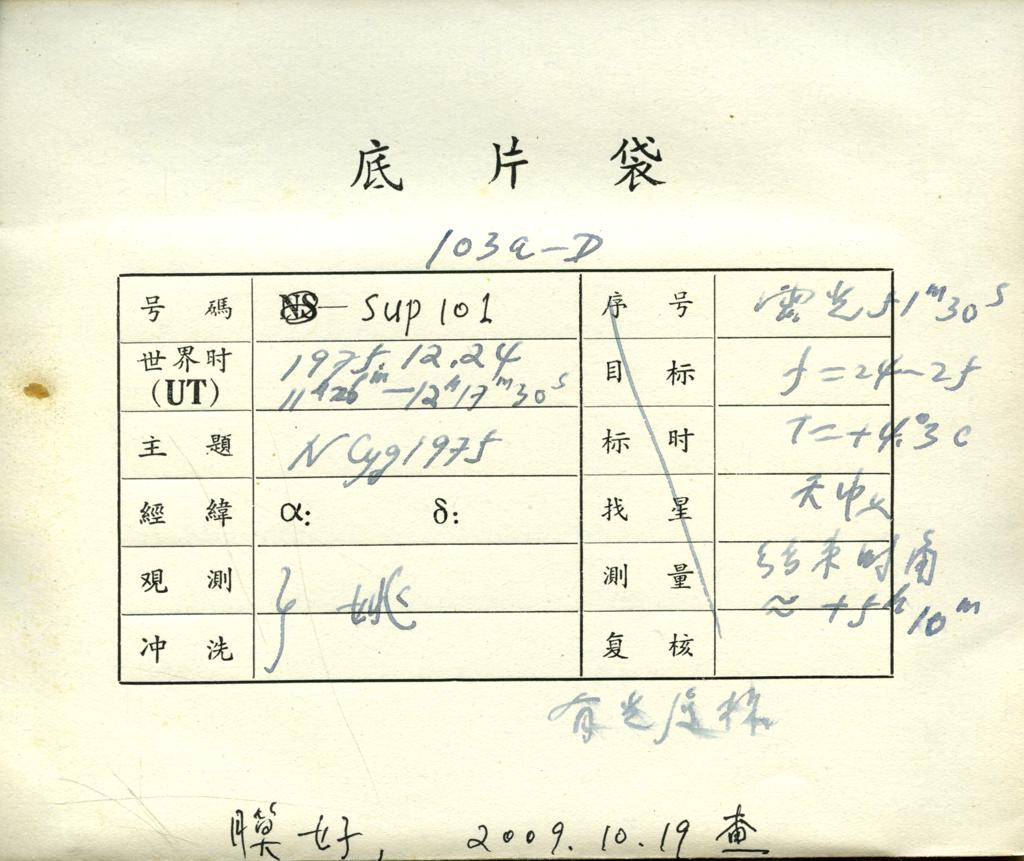 底 片 袋
103a-D
号 碼 NS — Sup 101 序 号 露光 51ᵐ30ˢ
世界时 (UT) 1975.12.24 目 标 f=24-25
11ʰ26ᵐ—12ʰ17ᵐ30ˢ
主 題 N Cyg 1975 标 时 T=+4.°3 C
經 緯 α: δ: 找 星 天中
观 測 姚 測 量 结束时角
冲 洗 复 核 ≈ +5ʰ10ᵐ
有光度标
膜好, 2009.10.19 查